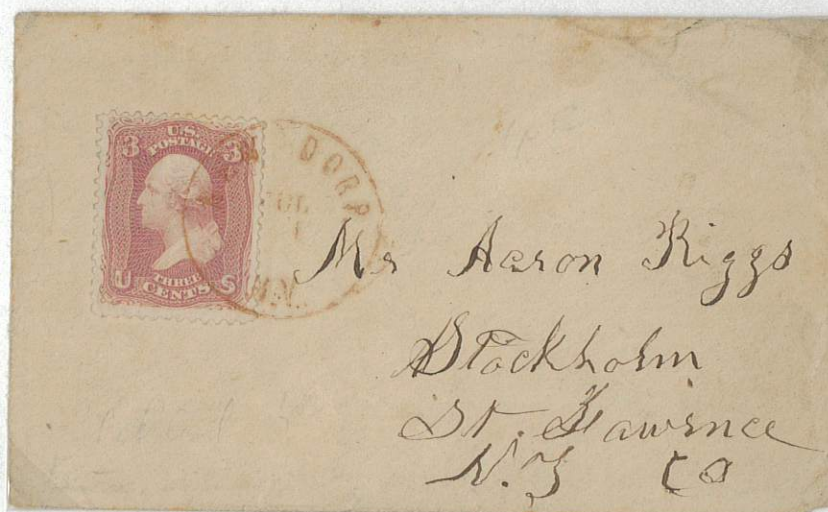 U.S.
POSTAGE
3 3
THREE
CENTS
U S
DORP
JUL
1
Mr Aaron Riggs
Stockholm
St. Lawrence
N.Y Co